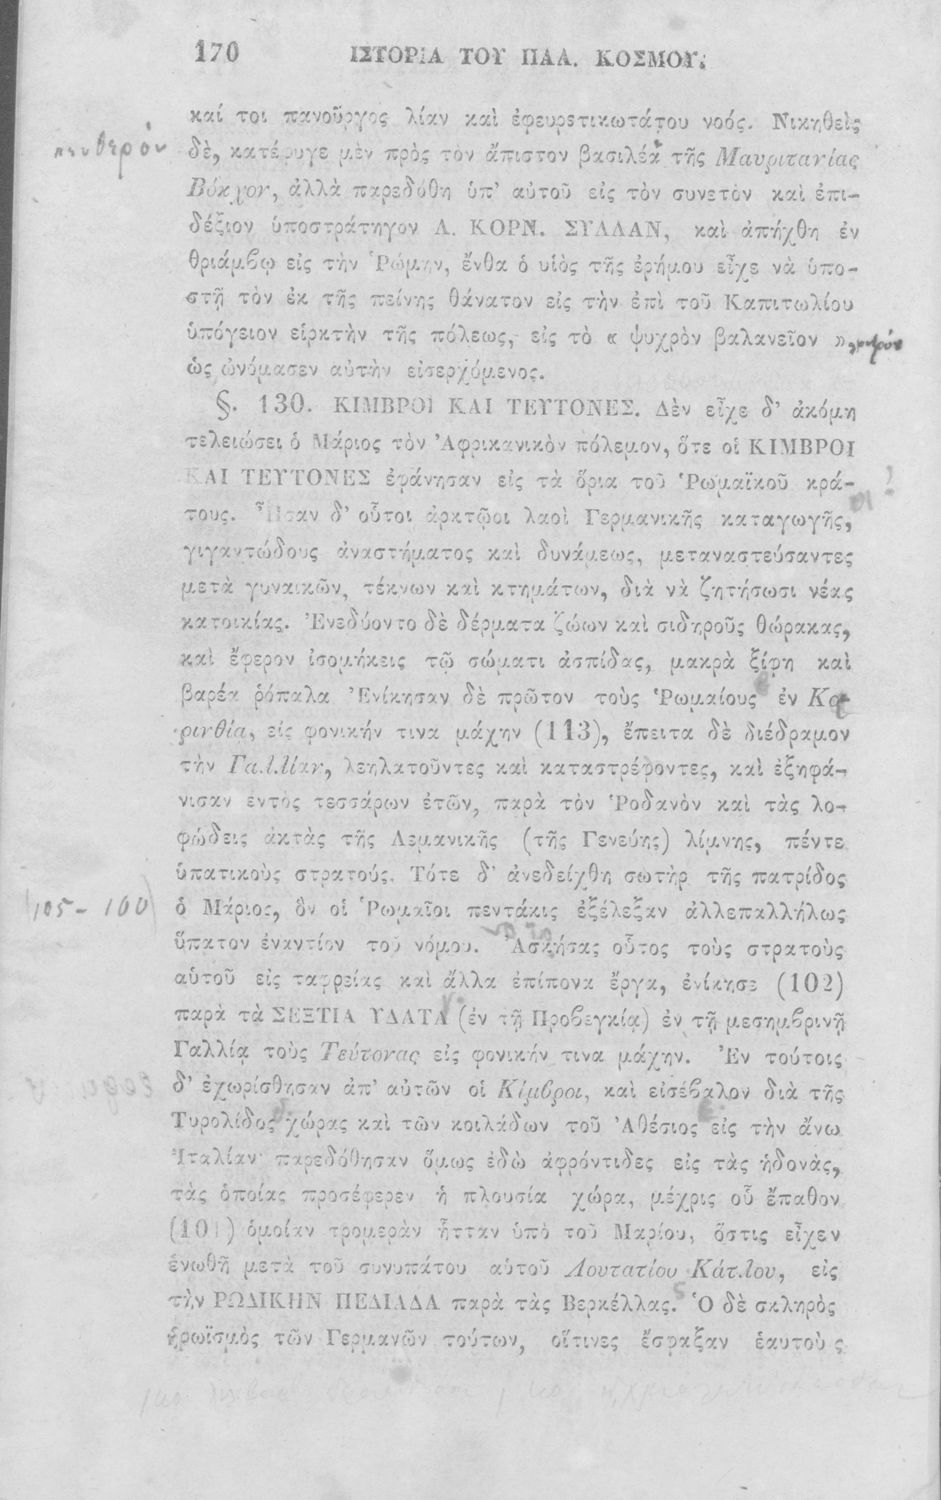 170 ΙΣΤΟΡΙΑ ΤΟΥ ΠΑΛ. ΚΟΣΜΟΥ.
καί τοι πανοῦργος λίαν καὶ ἐφευρετικωτάτου νοός. Νικηθεὶς
πενθερόν
δὲ, κατέφυγε μὲν πρὸς τὸν ἄπιστον βασιλέα τῆς Μαυριτανίας
Βόκχον, ἀλλὰ παρεδόθη ὑπ' αὐτοῦ εἰς τὸν συνετὸν καὶ ἐπι-
δέξιον ὑποστράτηγον Λ. ΚΟΡΝ. ΣΥΛΛΑΝ, καὶ ἀπήχθη ἐν
θριάμβῳ εἰς τὴν Ῥώμην, ἔνθα ὁ υἱὸς τῆς ἐρήμου εἶχε νὰ ὑπο-
στῇ τὸν ἐκ τῆς πείνης θάνατον εἰς τὴν ἐπὶ τοῦ Καπιτωλίου
ὑπόγειον εἱρκτὴν τῆς πόλεως, εἰς τὸ « ψυχρὸν βαλανεῖον »
ὡς ὠνόμασεν αὐτὴν εἰσερχόμενος.
§. 130. ΚΙΜΒΡΟΙ ΚΑΙ ΤΕΥΤΟΝΕΣ. Δὲν εἶχε δ' ἀκόμη
τελειώσει ὁ Μάριος τὸν Ἀφρικανικὸν πόλεμον, ὅτε οἱ ΚΙΜΒΡΟΙ
ΚΑΙ ΤΕΥΤΟΝΕΣ ἐφάνησαν εἰς τὰ ὅρια τοῦ Ῥωμαϊκοῦ κρά-
τους. Ἦσαν δ' οὗτοι ἀρκτῷοι λαοὶ Γερμανικῆς καταγωγῆς,
γιγαντώδους ἀναστήματος καὶ δυνάμεως, μεταναστεύσαντες
μετὰ γυναικῶν, τέκνων καὶ κτημάτων, διὰ νὰ ζητήσωσι νέας
κατοικίας. Ἐνεδύοντο δὲ δέρματα ζώων καὶ σιδηροῦς θώρακας,
καὶ ἔφερον ἰσομήκεις τῷ σώματι ἀσπίδας, μακρὰ ξίφη καὶ
βαρέα ῥόπαλα Ἐνίκησαν δὲ πρῶτον τοὺς Ῥωμαίους ἐν Κα-
ρινθίᾳ, εἰς φονικήν τινα μάχην (113), ἔπειτα δὲ διέδραμον
τὴν Γαλλίαν, λεηλατοῦντες καὶ καταστρέφοντες, καὶ ἐξηφά-
νισαν ἐντὸς τεσσάρων ἐτῶν, παρὰ τὸν Ῥοδανὸν καὶ τὰς λο-
φώδεις ἀκτὰς τῆς Λεμανικῆς (τῆς Γενεύης) λίμνης, πέντε
ὑπατικοὺς στρατούς. Τότε δ' ἀνεδείχθη σωτὴρ τῆς πατρίδος
105-100
ὁ Μάριος, ὃν οἱ Ῥωμαῖοι πεντάκις ἐξέλεξαν ἀλλεπαλλήλως
ὕπατον ἐναντίον τοῦ νόμου. Ἀσκήσας οὗτος τοὺς στρατοὺς
αὑτοῦ εἰς ταφρείας καὶ ἄλλα ἐπίπονα ἔργα, ἐνίκησε (102)
παρὰ τὰ ΣΕΞΤΙΑ ΥΔΑΤΑ (ἐν τῇ Προβεγκίᾳ) ἐν τῇ μεσημβρινῇ
Γαλλίᾳ τοὺς Τεύτονας εἰς φονικήν τινα μάχην. Ἐν τούτοις
δ' ἐχωρίσθησαν ἀπ' αὐτῶν οἱ Κίμβροι, καὶ εἰσέβαλον διὰ τῆς
Τυρολίδος χώρας καὶ τῶν κοιλάδων τοῦ Ἀθέσιος εἰς τὴν ἄνω
Ἰταλίαν· παρεδόθησαν ὅμως ἐδὼ ἀφρόντιδες εἰς τὰς ἡδονὰς,
τὰς ὁποίας προσέφερεν ἡ πλουσία χώρα, μέχρις οὗ ἔπαθον
(101) ὁμοίαν τρομερὰν ἧτταν ὑπὸ τοῦ Μαρίου, ὅστις εἶχεν
ἑνωθῆ μετὰ τοῦ συνυπάτου αὑτοῦ Λουτατίου Κάτλου, εἰς
τὴν ΡΩΔΙΚΗΝ ΠΕΔΙΑΔΑ παρὰ τὰς Βερκέλλας. Ὁ δὲ σκληρὸς
ἡρωϊσμὸς τῶν Γερμανῶν τούτων, οἵτινες ἔσφαξαν ἑαυτοὺς